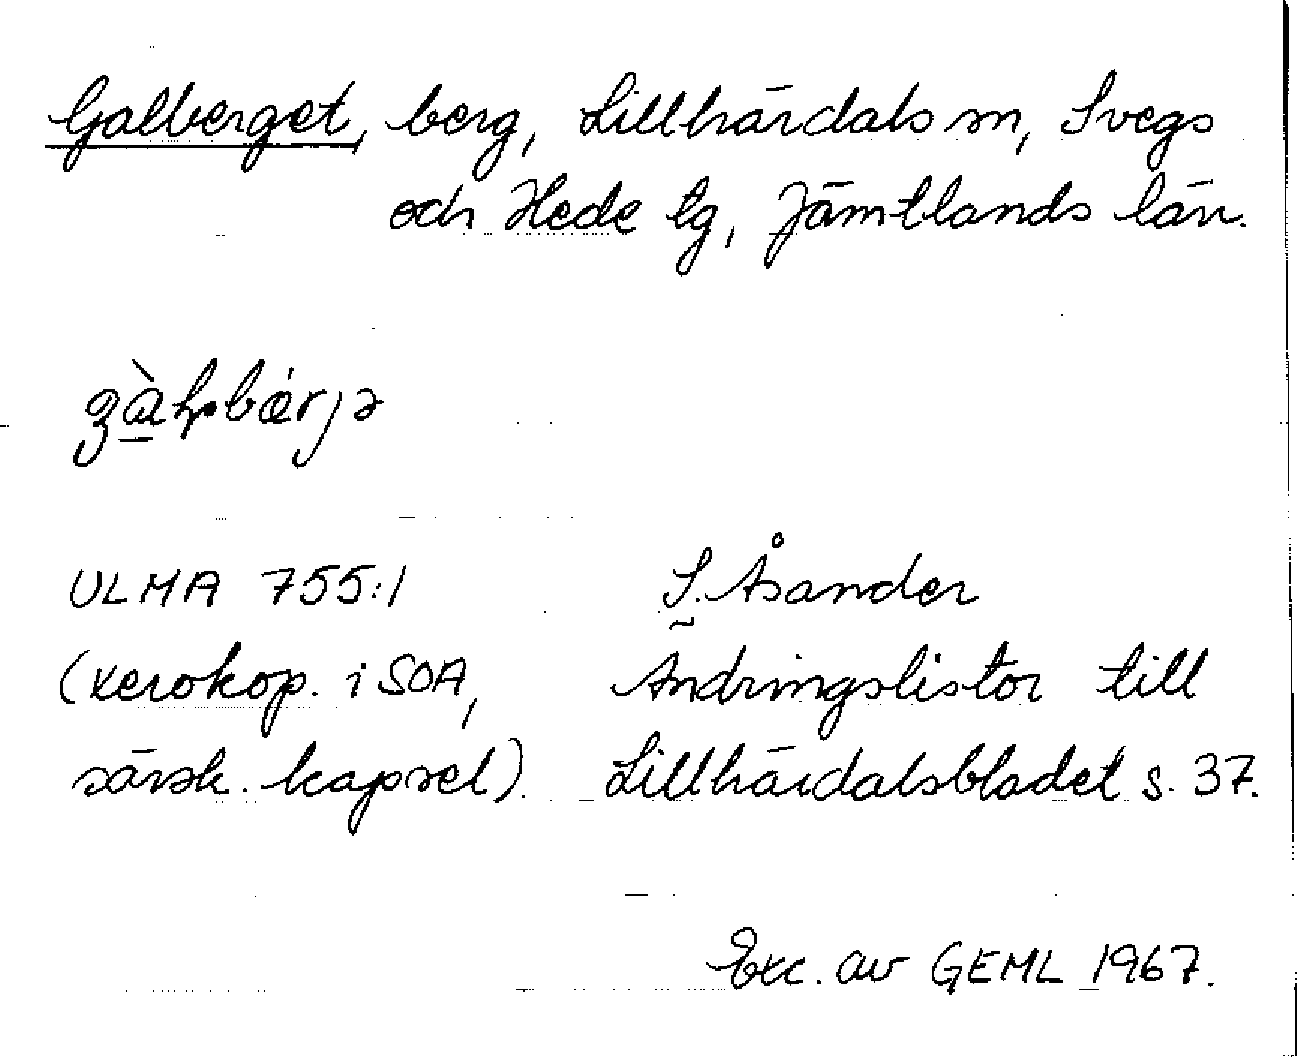 Galberget, berg, Lillhärdals sn, Svegs
och Hede tg, Jämtlands län.
ULMA 755:1 S. Åsander
(xerokop. i SOA, Ändringslistor till
särsk. kapsel). Lillhärdalsbladet s. 37.
Exc. av GEML 1967.